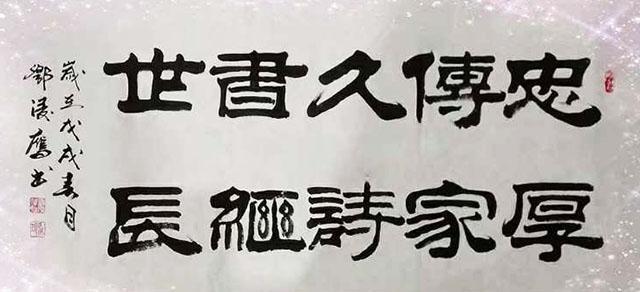 忠厚
傳家
久詩
書繼
世長
歲在戊戌春月
鄧鷹书